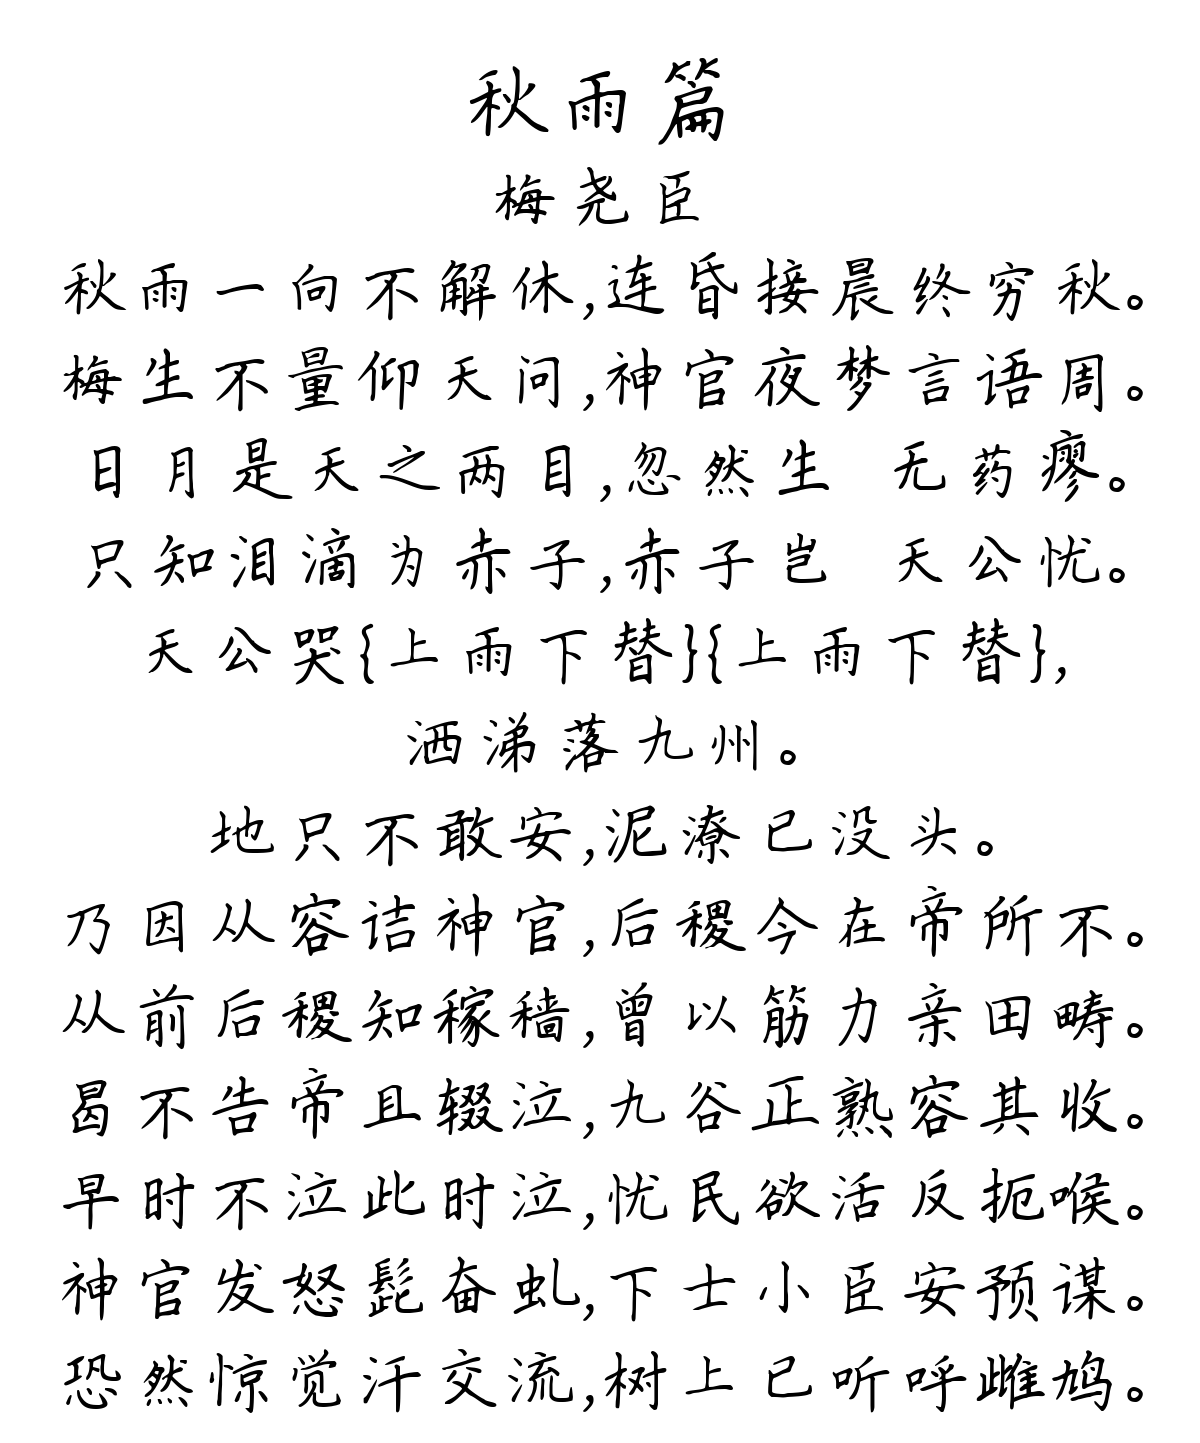 秋雨篇
梅尧臣
秋雨一向不解休,连昏接晨终穷秋。
梅生不量仰天问,神官夜梦言语周。
日月是天之两目,忽然生 无药瘳。
只知泪滴为赤子,赤子岂 天公忧。
天公哭{上雨下替}{上雨下替},
洒涕落九州。
地只不敢安,泥潦已没头。
乃因从容诘神官,后稷今在帝所不。
从前后稷知稼穑,曾以筋力亲田畴。
曷不告帝且辍泣,九谷正熟容其收。
早时不泣此时泣,忧民欲活反扼喉。
神官发怒髭奋虬,下士小臣安预谋。
恐然惊觉汗交流,树上已听呼雌鸠。